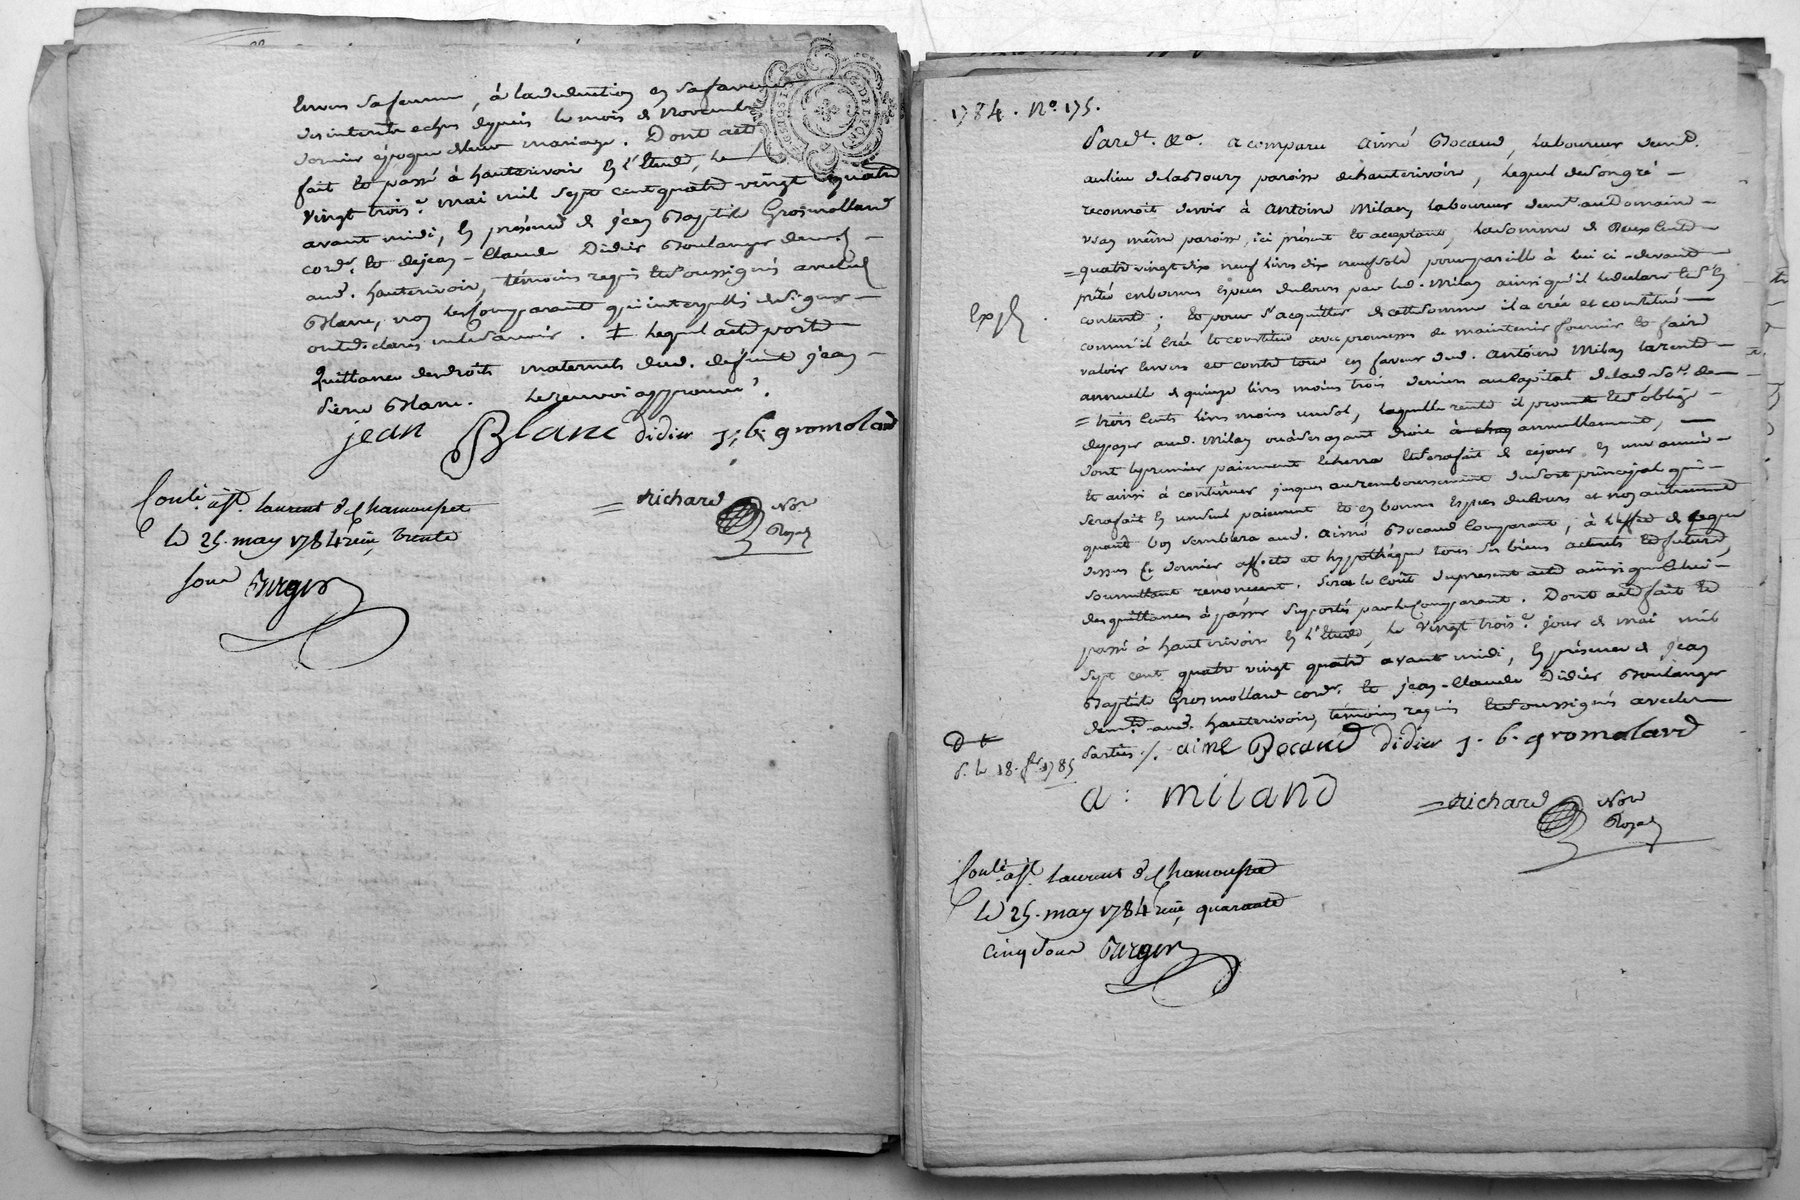 Envers sa femme, à la déduction en sa faveur
des interets echus depuis le mois de Novembre
dernier époque de leur mariage. Dont acte
fait et passé à hauterivoir en l'Etude, le
vingt trois.e mai mil sept cent quatre vingt quatre
avant midi, en présence de jean Baptiste Grosmolland
cord.r et de jean-Claude Didier Boulanger dem.t
aud. hauterivoir, témoins requis et soussignés avec led
Blanc, non les comparant qui interpellés de signer
ont déclaré ne le savoir. ‡ lequel acte porte
Quittance des droits maternels dud. defunt jean
pierre Blanc. le renvoi approuvé.
jean Blanc didier j. b. gromolard
Richard No.re
Royal
Conlé. à s.t laurent de Chamousset
le 25. may 1784 reçu trente
sous Berger
1784. N.o 175.
Pard.t &a. a comparu aimé Bocaud, laboureur dem.t
au lieu de laBoury paroisse de hauterivoir, lequel de son gré
reconnoit devoir à antoine Milan laboureur dem.t au Domaine
même paroisse, ici présent et acceptant, la somme de Deux Cent
= quatre vingt dix neuf livres dix neuf sols pour pareille à lui ci-devant
prêté en bonnes Espèces du Cours par led. Milan ainsi qu'il le déclare et s'en
Exp.é
contente; et pour s'acquitter de cette somme il a créé et constitué
comm'il Crée et constitue avec promesse de maintenir fournir et faire
valoir Envers et contre tous en faveur dud. antoine Milan la rente
annuelle de quinze livres moins trois deniers au Capital de lad. so.e de
= trois Cents livres moins un sol, laquelle rente il promet et s'oblige
de payer aud. Milan ou à des ayant droit à chaq annuellement,
dont le premier paiement echerra et sera fait de ce jour en une année
et ainsi à continuer jusques au remboursement du sort principal qui
sera fait en un seul paiement et en bonnes Espèces du Cours et non autrement
quant bon semblera aud. aimé Bocaud Comparant, à l'effet de Ce que
dessus Ce dernier affecte et hypothèque tous ses biens actuels et futurs,
soumettant renoncent. Sera le coût du present acte ainsi que Celui
des quittances à passer supportés par le Comparant. Dont acte fait et
passé à hauterivoir en l'Etude, le vingt trois.e jour de mai mil
sept cent quatre vingt quatre avant midi, en présence de jean
Baptiste Grosmolland cord.r et jean-Claude Didier Boulanger
dem.t aud. hauterivoir, témoins requis et soussignés avec les
parties ./. aimé Bocaud didier j. b. gromolard
a: miland
Richard No.re
Royal
Conlé. à s.t laurent de Chamousset
le 25. may 1784 reçu quarante
cinq sous Berger